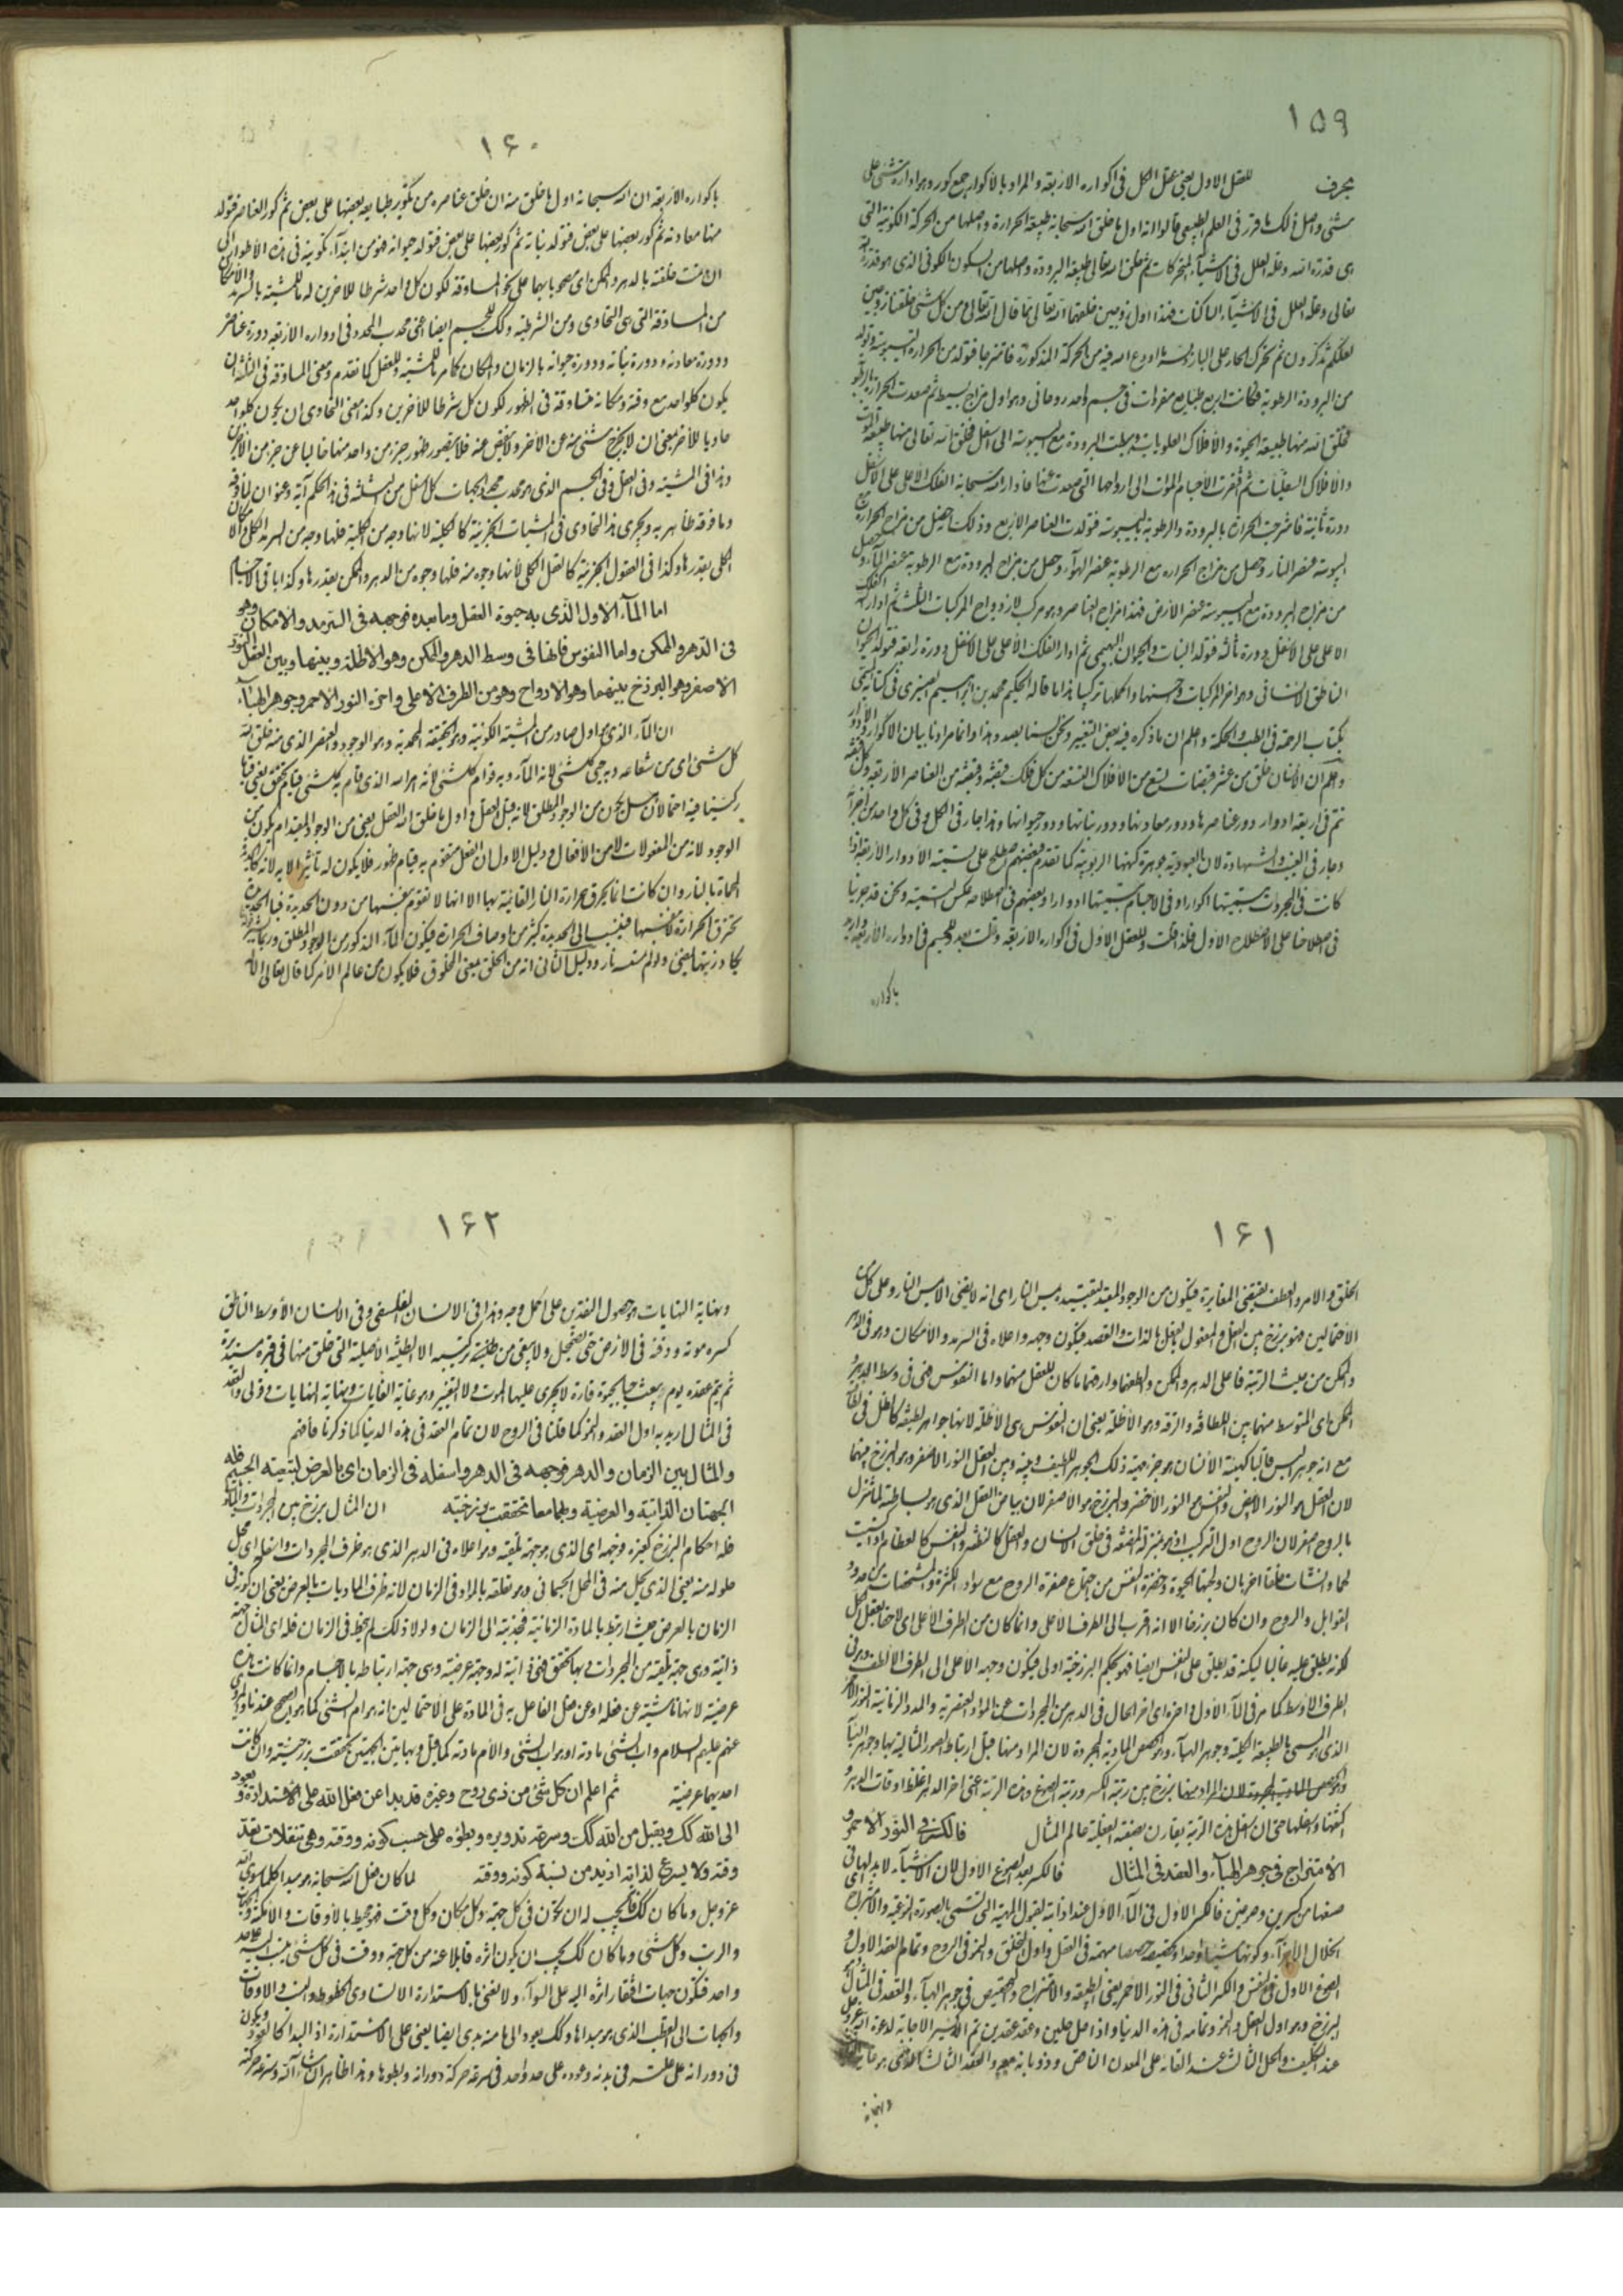 ١٥٩
للعقل الاول يعنى عقل الكل فى اكواره الاربعة والمراد بالاكوار جمع كور وهو ادارة شئ على
شئ واصل ذلك ما قرر فى العلم الطبيعى قالوا انه اول ما خلق الله سبحانه طبيعة الحرارة واصلها من الحركة الكونية التى
هى قدرة الله وعلة العلل فى الاشياء المتحركات ثم خلق الله تعالى طبيعة البرودة واصلها من السكون الكونى الذى هو قدرة الله
تعالى وعلة العلل فى الاشياء الساكنات فهذه اول زوجين خلقهما الله تعالى كما قال الله تعالى ومن كل شئ خلقنا زوجين
لعلكم تذكرون ثم تحرك الحار على البارد بما اودع الله فيه من الحركة المذكورة فامتزجا فتولد من الحرارة اليبوسة وتولد
من البرودة الرطوبة فكانت اربع طبايع مفردات فى جسم واحد روحانى وهو اول مزاج بسيط ثم صعدت الحرارة بالرطوبة
فخلق الله منها طبيعة الحيوة والافلاك العلويات وهبطت البرودة مع اليبوسة الى اسفل فخلق الله تعالى منها طبيعة الموت
والافلاك السفليات ثم افتقرت الاجسام الموات الى ارواحها التى صعدت عنها فادار الله سبحانه الفلك الاعلى على الاسفل
دورة ثانية فامتزجت الحرارة بالبرودة والرطوبة باليبوسة فتولدت العناصر الاربع وذلك انه حصل من مزاج الحرارة مع
اليبوسة عنصر النار وحصل من مزاج الحرارة مع الرطوبة عنصر الهوآء وحصل من مزاج البرودة مع الرطوبة عنصر المآء وحصل
من مزاج البرودة مع اليبوسة عنصر الارض فهذا مزاج العناصر وهو مركب لازدواج المركبات الثلث ثم ادار الله الفلك
الاعلى على الاسفل دورة ثالثة فتولد النبات والحيوان البهيمى ثم ادار الفلك الاعلى على الاسفل دورة رابعة فتولد الحيوان
الناطق الانسانى وهو آخر المركبات واحسنها واكملها تركيبا هذا ما قاله الحكيم محمد بن ابراهيم فى كتابه المسمى
بكتاب الرحمة فى الطب والحكمة واعلم ان ما ذكره فيه بعض التغيير ونحن لسنا بصدد هذا وانما مرادنا بيان الاكوار والادوار
واعلم ان الانسان خلق من عشر قبضات تسع من الافلاك التسعة من كل فلك قبضة وقبضة من العناصر الاربعة وكل قبضة
تتم فى اربعة ادوار دور عناصرها ودور معادنها ودور نباتها ودور حيوانها وهذا جار فى الكل وفى كل واحد من اجزائه
وجار فى الغيب والشهادة لان العبودية جوهرة كنهها الربوبية كما تقدم فبعضهم اصطلح على تسمية الادوار الاربعة اذا
كانت فى المجردات بتسميتها اكوارا وفى الاجسام بتسميتها ادوارا وبعضهم فى اصطلاحه عكس التسمية ونحن قد جرينا
فى اصطلاحنا على الاصطلاح الاول فلذا قلت وللعقل الاول فى اكواره الاربعة وقلت بعد وللجسم فى ادواره الاربعة
باكواره
١۶٠
باكواره الاربعة ان الله سبحانه اول ما خلق منه ان خلق عناصره من تكوير طبايعه بعضها على بعض ثم كور العناصر فتولد
منها معادنه ثم كور بعضها على بعض فتولد نباته ثم كور بعضها على بعض فتولد حيوانه فهو من ابتدآء تكوينه فى هذه الاطوار الى
ان تمت خلقته بالدهر والممكن اى مصحوبا بهما على نحو المساوقة لكون كل واحد شرطا للاخرين له للمشية بالسرمد والامكان
من المساوقة التى هى التحاوى ومن الشرطية وكك للجسم ايضا اعنى محدب المحدد فى ادواره الاربعة دورة عناصر
ودورة معادنه ودورة نباته ودورة حيوانه بالزمان والمكان كما مر للمشية وللعقل كما تقدم ومعنى المساوقة فى الثلثة ان
يكون كل واحد مع وقته ومكانه متساوقة فى الظهور لكون كل شرطا للاخرين وكذا معنى التحاوى ان يكون كل واحد
حاويا للآخر بمعنى ان لا يخرج شئ منه عن الآخر ولا ينقص عنه فلا يتصور ظهور جزء من واحد منها خاليا عن جزء من الآخرين
وهذا فى المشية وفى العقل وفى الجسم الذى هو محدب محدد الجهات كل اسفل من الثلثة فى هذا الحكم آية وعنوان لما فوقه
وما فوقه ظاهر به ويجرى هذا التحاوى فى المشيات الجزئية كالكلية لانها وجه من الكلية فلها وجه من السرمد الكلى والامكان
الكلى بقدرها وكذا فى العقول الجزئية كالعقل الكلى لانها وجوه منه فلها وجوه من الدهر والممكن بقدرها وكذا باقى الاجسام
اما المآء الاول الّذى به حيوة العقل وما بعده فوجهه فى السّرمد والامكان وهو
فى الدّهر والممكن واما النفوس فانها فى وسط الدهر والممكن وهو الاظلة وبينها وبين العقل النور
الاصفر وهو البرزخ بينهما وهو الارواح وهو من الطرف الاعلى واخره النور الاحمر وجوهر الهبآء
ان المآء الذى هو اول صادر من المشية الكونية وهو الحقيقة المحمدية وهو الوجود والعنصر الذى منه خلق الله
كل شئ اى من شعاعه وبه حى كل شئ لانه المآء وبه قوام كل شئ لانه امر الله الذى قام به كل شئ قيام تحقق يعنى قياما
ركنيا فيه احتمالان هل يكون من الوجود المطلق لانه قبل العقل واول ما خلق الله العقل يعنى من الوجود المقيد ام يكون من
الوجود لانه من المفعولات لا من الافعال ودليل الاول ان الفعل متقوم به قيام ظهور فلا يكون له تأثير الا به لانه كالحديدة
المحماة بالنار وان كانت انما تحرق بحرارة النار القائمة بها الا انها لا تقوم بنفسها من دون الحديدة
تحرق الحرارة بنفسها فينسب الى الحديدة كثير من اوصاف الحرارة فيكون المآء المذكور من الوجود المطلق
يكاد زيتها يضئ ولو لم تمسسه نار ودليل الثانى انه من الخلق يعنى المخلوق فلا يكون من عالم الامر كما قال تعالى الا له
١۶١
الخلق والامر والعطف يقتضى المغايرة فيكون من الوجود المقيد لتقييده بمس النار اى انه لا يضئ الا بمس النار وعلى كل من
الاحتمالين فهو برزخ بين الفعل والمفعول بالذات والقصد فيكون وجهه واعلاه فى السرمد والامكان وهو فى الدهر
والممكن من حيث الرتبة فاعلى الدهر والممكن والطفهما وارقهما ما كان للعقل منهما واما النفوس فهى فى وسط الدهر
الممكن اى المتوسط منهما بين اللطافة والرقة وهو الاظلة يعنى ان النفوس هى الاظلة لانها جواهر لطيفة كالظل فى
مع انه جوهر ليس قالبا كهيئة الانسان هو جزء هيئة ذلك الجوهر اللطيف وبينه وبين العقل النور الاصفر وهو البرزخ بينهما
لان العقل هو النور الابيض والنفس هو النور الاخضر والبرزخ هو الاصفر لان بياض العقل الذى هو بساطته لما تنزل
بالروح اصفر لان الروح اول التركيب اذ هو بمنزلة المضغة فى خلق الانسان والعقل كالنطفة والنفس كالعظام اذا كسيت
لحما وانشأت خلقا اخر بان ولجها الحيوة وخضرة النفس من اجتماع صفرة الروح مع سواد الكثرة والمشخصات من حدود
القوابل والروح وان كان برزخا الا انه اقرب الى الطرف الاعلى وانما كان من الطرف الاعلى اى لاحقا بعقل الكل
لكونه يطلق عليه غالبا لكنه قد يطلق على النفس ايضا فهو بحكم البرزخية اولى فيكون وجهه الاعلى الى الطرف الالطف وهو فى
الطرف الاوسط كما مر فى المآء الاول واخره اى اخر الحال فى الدهر من المجردات عن المواد العنصرية والمدد الزمانية النور الاحمر
الذى هو المسمى بالطبيعة الكلية وجوهر الهبآء والحصص المادية المجردة لان المراد منها قبل ارتباط الصور المثالية بها وجوهر الهبآء
والحصص المادية المجردة لان المراد منها برزخ بين رتبة الكسر ورتبة الصوغ وهذه الرتبة اعنى اخر الدهر اغلظ اوقات الدهر و
اكثفها واسفلها حتى ان اسفل هذه الرتبة يقارن بصفته الفعلية عالم المثال فالكسر فى النّور الاحمر و
الامتزاج فى جوهر الهبآء والعقد فى المثال فالكسر بعد الصوغ الاول لان الاشيآء لابد لها فى
صنعها من كسرين وصوغين فالكسر الاول فى المآء الاول عند اذابته لقبول المهية التى تسمى بالصورة النوعية والامتزاج
انحلال الاجزآء وكونها شيئا واحدا فى العقل واول التخلق والنمو فى الروح وتمام العقد الاول و
الصوغ الاول فى النفس والكسر الثانى فى النور الاحمر يعنى الطبيعة والامتزاج والتخصيص فى جوهر الهبآء والعقد فى المثال
البرزخ وهو اول العقل والنمو وتمامه فى هذه الدنيا واذا حل حلين وعقد عقدين تم الاكسير الاجابة لدعوة الله عز وجل
عند التكليف والحل الثالث عند القائه على المعدن الناقص وذوبانه معه والعقد الثالث
ونهاية
١۶٢
ونهاية النهايات هو حصول النقدين على اكمل وجه وهذا فى الانسان الفلسفى وفى الانسان الاوسط الناطق
كسره موته ودفنه فى الارض حتى يضمحل ولا يبقى من طينته تركيبه الا الطينة الاصلية التى خلق منها فى قبره مستديرة
ثم يتم عقده يوم يبعث حيا بحيوة قارة لا يجرى عليها الموت ولا التغيير وهو غاية الغايات ونهاية النهايات وقولى والعقد
فى المثال اريد به اول العقد والنمو كما قلنا فى الروح لان تمام العقد فى هذه الدنيا كما ذكرنا فافهم
والمثال بين الزمان والدهر فوجهه فى الدهر واسفله فى الزمان اى بالعرض لتبعيته الجسم فله
الجهتان الذاتية والعرضية وبهما معا تحققت برزخيته ان المثال برزخ بين المجردات والماديات
فله احكام البرزخ كغيره فوجهه اى الذى هو جهة تلقيه وهو اعلاه فى الدهر الذى هو ظرف المجردات واسفله اى محل
حلوله منه يعنى الذى يحل منه فى المحل الجسمانى وهو تعلقه بالمواد فى الزمان لانه ظرف الماديات بالعرض يعنى ان كونه فى
الزمان بالعرض حيث ارتبط بالمادة الزمانية فجذبته الى الزمان ولولا ذلك لم ينحط فى الزمان فله اى المثال جهة
ذاتية وهى جهة تلقيه من المجردات بها تحقق فهى ذاتية له وجهة عرضية وهى جهة ارتباطه بالاجسام وانما كانت هذه
عرضية لانها ناشئة عن فعله او عن فعل الفاعل به فى المادة على الاحتمالين انه هو ام الشئ كما هو الصحيح عندنا والمروى
عنهم عليهم السلام واب الشئ مادته او هو اب الشئ والام مادته كما قيل وبهاتين الجهتين تحققت برزخيته وان كانت
احديهما عرضية ثم اعلم ان كل شئ من ذى روح وغيره قد بدا عن فعل الله على الاستدارة ويعود
الى الله كك ويقبل من الله كك وسرعة تدويره وبطؤه على حسب كونه ووقته وهى تنقلات بقدر
وقته ولا يسرع لذاته ازيد من نسبة كونه ووقته لما كان فعل الله سبحانه هو مبدا كل ما سوى الله
عز وجل وما كان كك فيجب له ان يكون فى كل جهة وكل مكان وكل وقت فهو محيط بالاوقات والامكنة والجهات
والرتب وكل شئ وما كان كك يجب ان يكون اثره قابلا عنه من كل جهة ووقت فى كل شئ بنسبة
واحد فتكون جهات افتقار اثره اليه على السوآء ولا نعنى بالاستدارة الا تساوى الخطوط والنسب والاوقات
والجهات الى القطب الذى هو مبداها وكك يعود الى ما منه بدئ ايضا يعنى على الاستدارة اذ البدا كالعود ويكون
فى دورانه على علته فى بدئه وعوده على حد واحد فى سرعة حركة دورانه وبطؤها وهذا ظاهر ان شاء الله وسرعة حركته